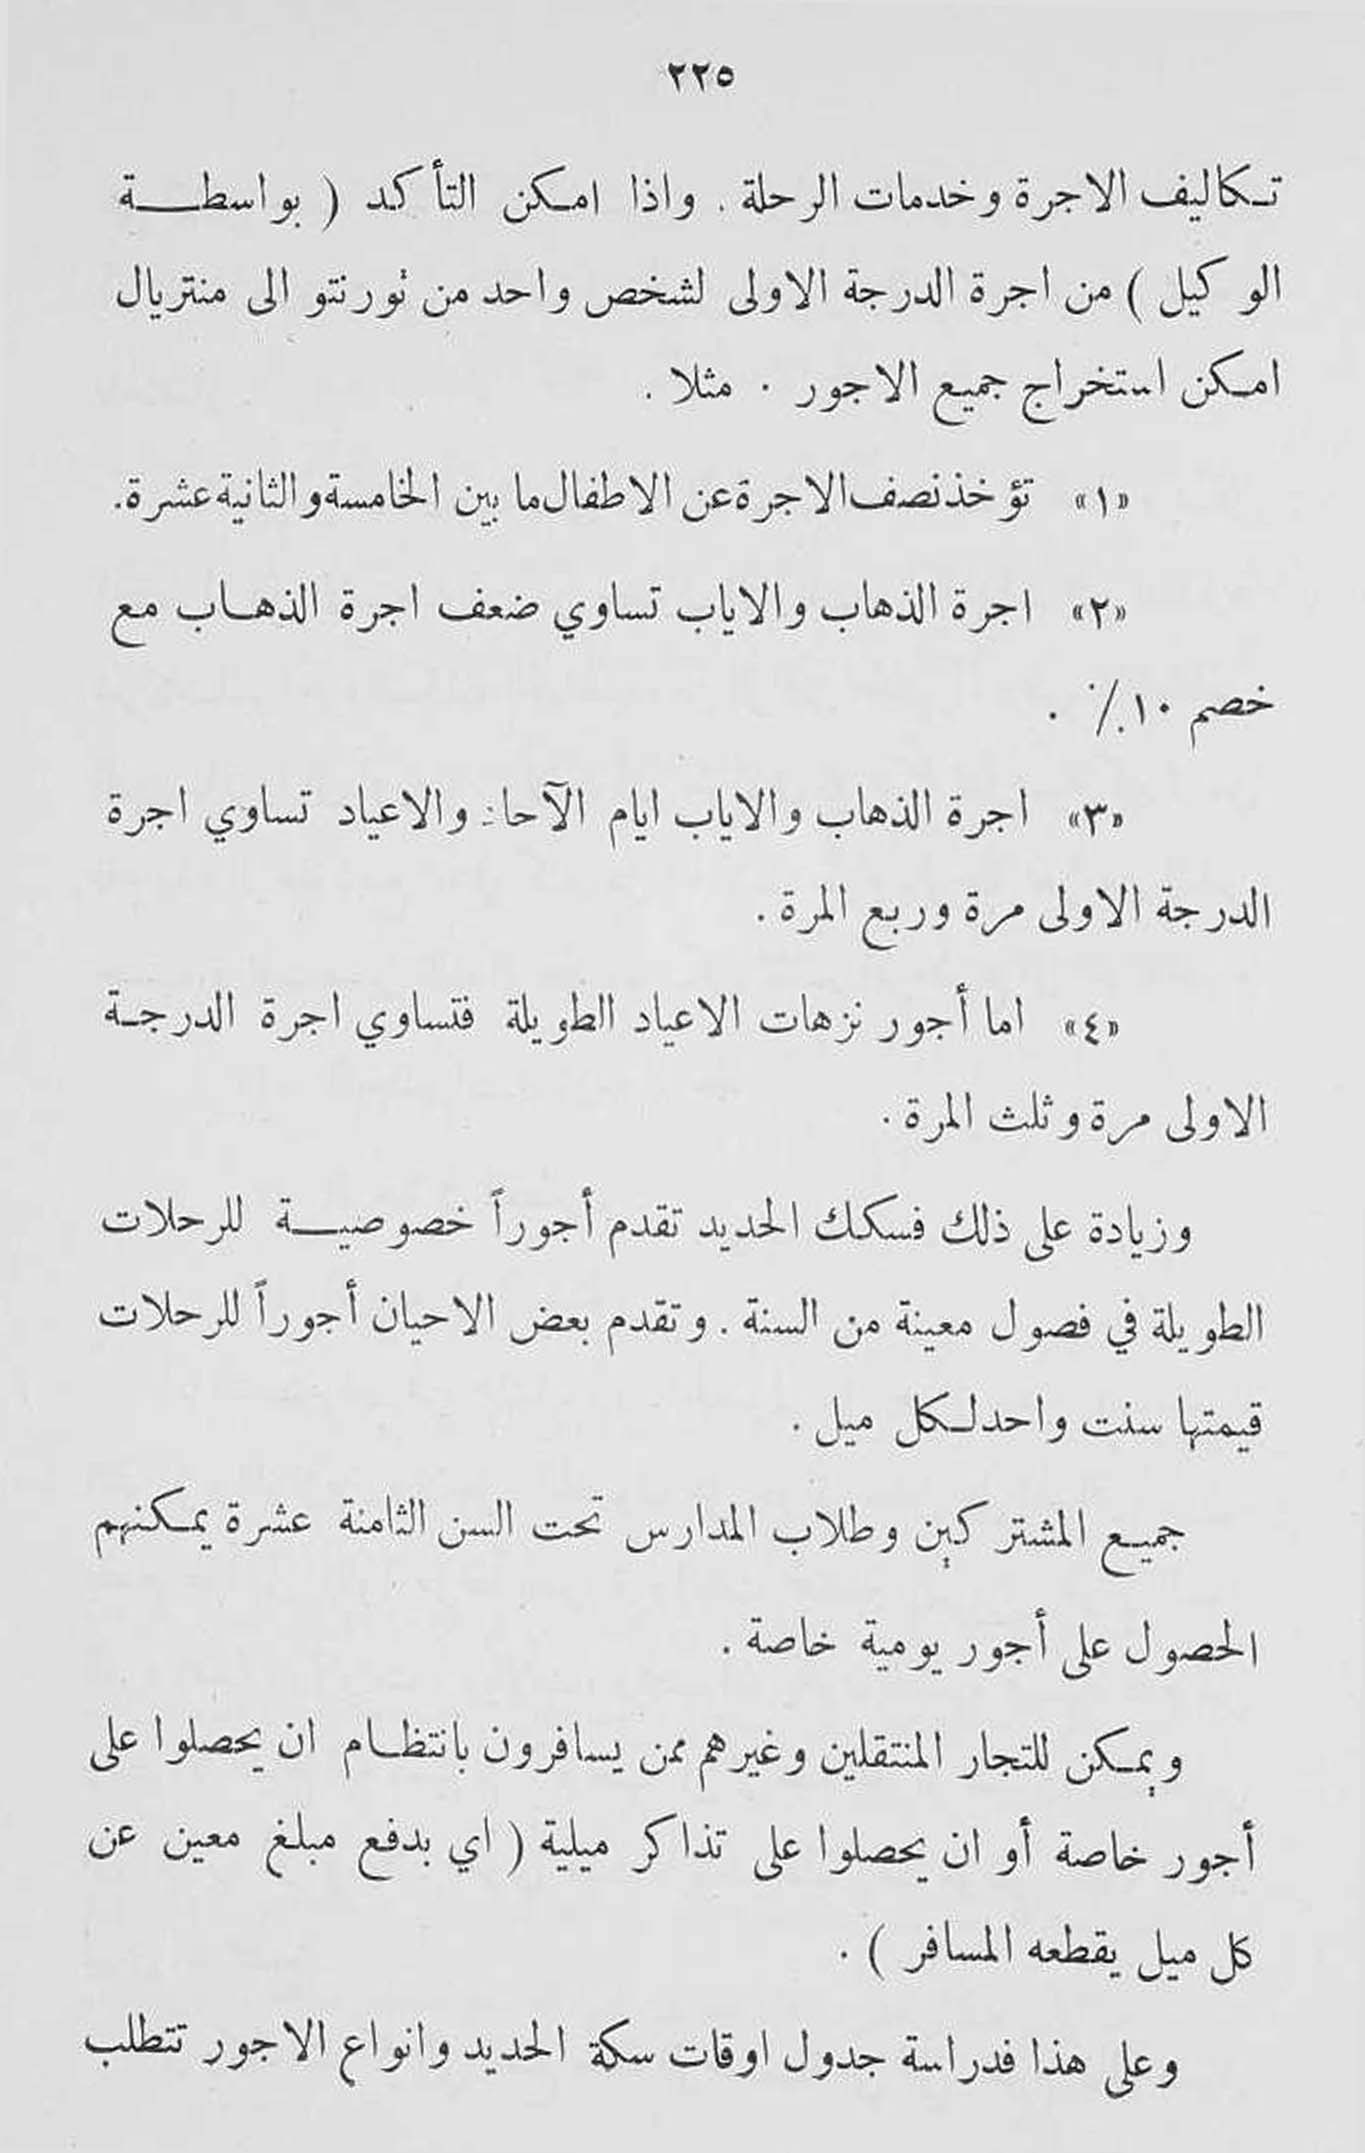 ٢٢٥
تكاليف الاجرة وخدمات الرحلة . واذا امكن التأكد ( بواسطة
الوكيل ) من اجرة الدرجة الاولى لشخص واحد من تورنتو الى منتريال
امكن استخراج جميع الاجور . مثلا .
«١» تؤخذ نصف الاجرة عن الاطفال ما بين الخامسة والثانية عشرة.
«٢» اجرة الذهاب والاياب تساوي ضعف اجرة الذهاب مع
خصم ١٠٪ .
«٣» اجرة الذهاب والاياب ايام الآحاد والاعياد تساوي اجرة
الدرجة الاولى مرة وربع المرة .
«٤» اما أجور نزهات الاعياد الطويلة فتساوي اجرة الدرجة
الاولى مرة وثلث المرة .
وزيادة على ذلك فسكك الحديد تقدم أجوراً خصوصية للرحلات
الطويلة في فصول معينة من السنة . وتقدم بعض الاحيان أجوراً للرحلات
قيمتها سنت واحد لكل ميل .
جميع المشتركين وطلاب المدارس تحت السن الثامنة عشرة يمكنهم
الحصول على أجور يومية خاصة .
ويمكن للتجار المنتقلين وغيرهم ممن يسافرون بانتظام ان يحصلوا على
أجور خاصة أو ان يحصلوا على تذاكر ميلية ( اي بدفع مبلغ معين عن
كل ميل يقطعه المسافر ) .
وعلى هذا فدراسة جدول اوقات سكة الحديد وانواع الاجور تتطلب